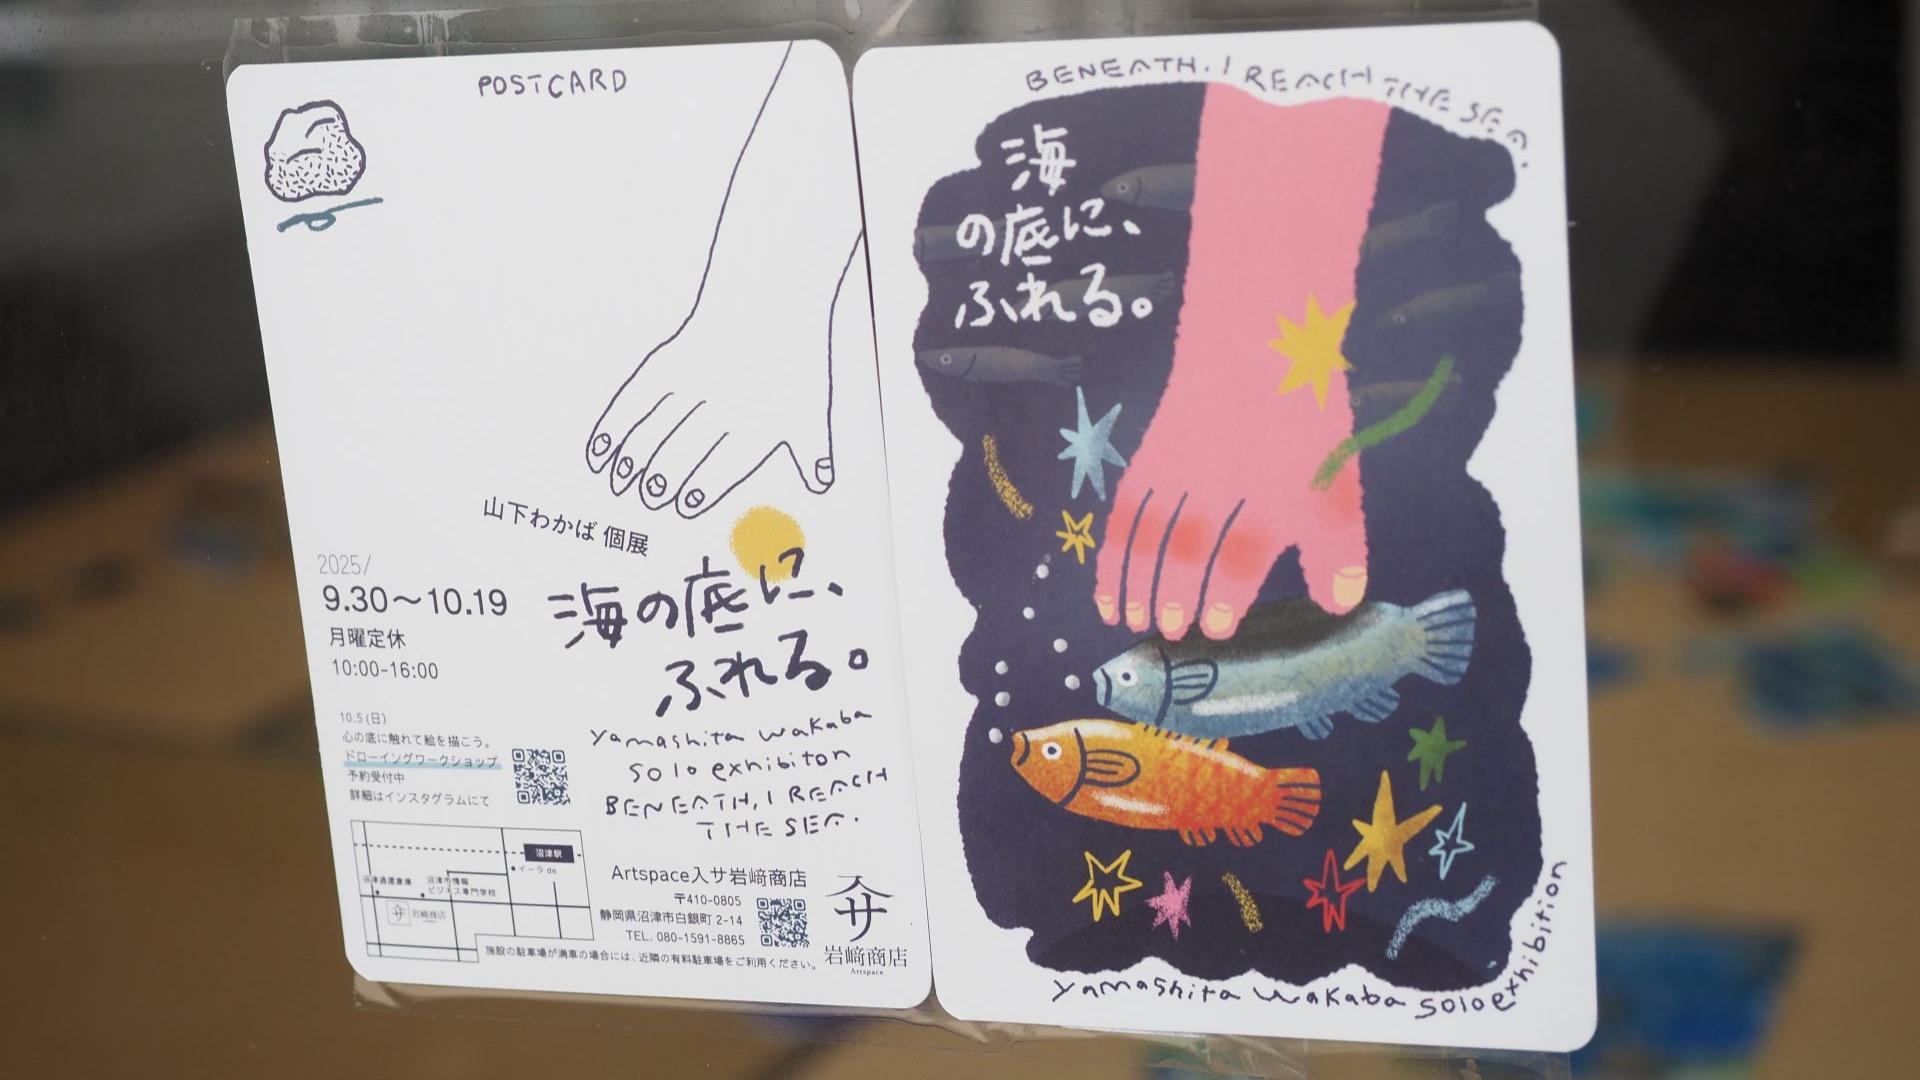 POSTCARD
山下わかば 個展
2025/
9.30〜10.19
月曜定休
10:00-16:00
海の底に、
ふれる。
yamashita wakaba
solo exhibiton
BENEATH, I REACH
THE SEA.
10.5(日)
心の底に触れて絵を描こう。
ドローイングワークショップ
予約受付中
詳細はインスタグラムにて
沼津駅
イーラde
沼津通運倉庫
沼津市情報
ビジネス専門学校
岩﨑商店
Artspace入サ岩﨑商店
〒410-0805
静岡県沼津市白銀町 2-14
TEL. 080-1591-8865
施設の駐車場が満車の場合には、近隣の有料駐車場をご利用ください。
入サ
岩﨑商店
Artspace
BENEATH. I REACH THE SEA.
海
の底に、
ふれる。
yamashita wakaba solo exhibition